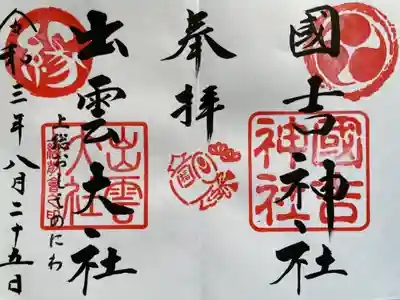 國吉神社
國吉神社
奉拝
出雲大社
出雲大社
縁
上総おしどりのにわ
令和三年八月二十五日